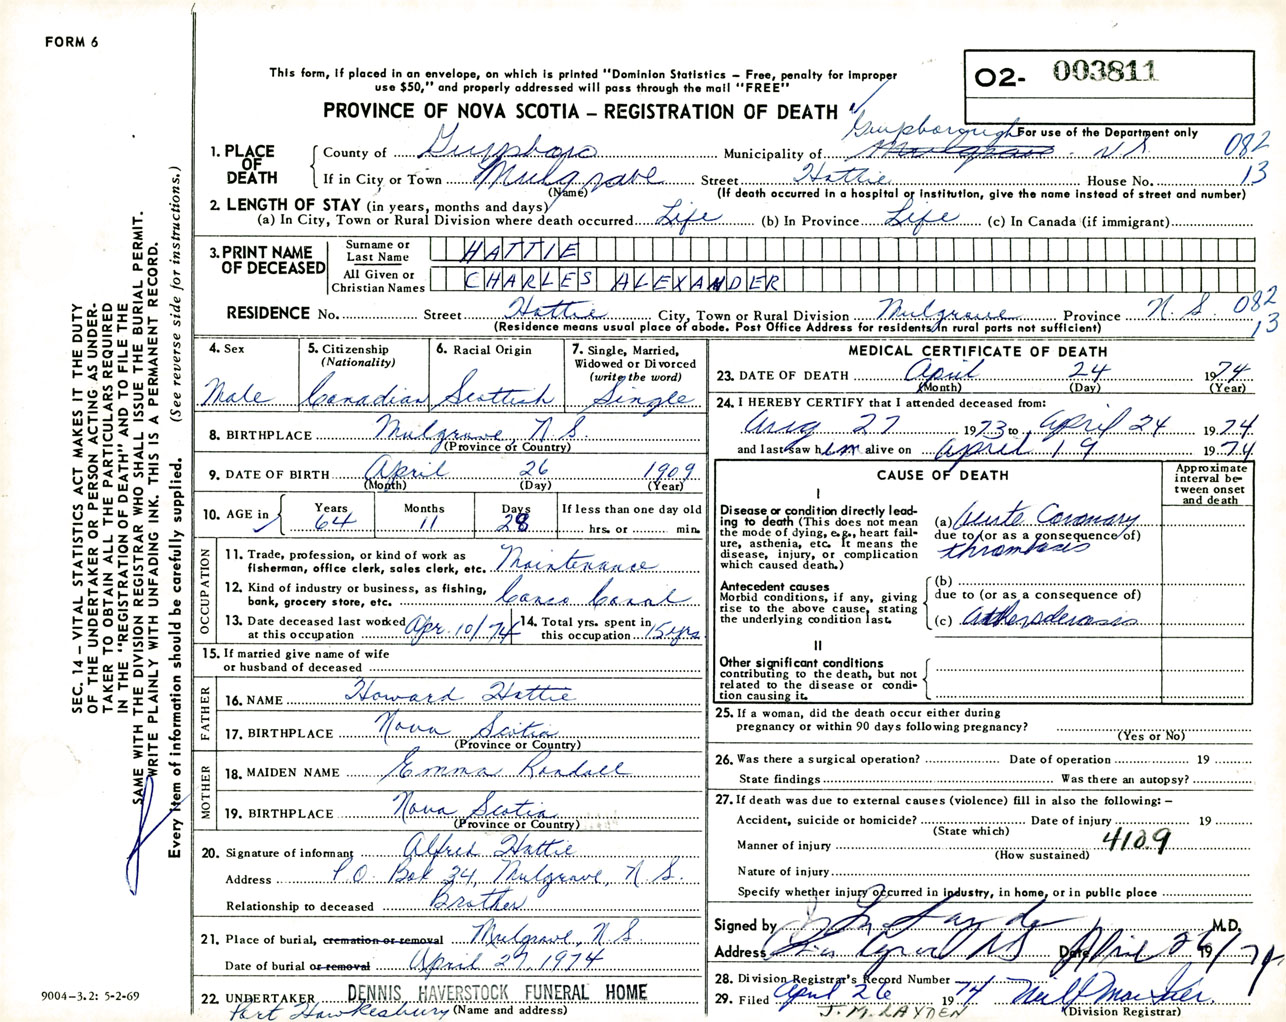 FORM 6
This form, if placed in an envelope, on which is printed "Dominion Statistics – Free, penalty for improper
use $50," and properly addressed will pass through the mail "FREE"
O2- 003811
PROVINCE OF NOVA SCOTIA – REGISTRATION OF DEATH
For use of the Department only
Guysborough
1. PLACE OF DEATH
County of Guysboro Municipality of Mulgrave N.S. 082
If in City or Town Mulgrave Street Hattie House No. 13
(Name) (If death occurred in a hospital or institution, give the name instead of street and number)
2. LENGTH OF STAY (in years, months and days)
(a) In City, Town or Rural Division where death occurred Life (b) In Province Life (c) In Canada (if immigrant)
3. PRINT NAME OF DECEASED
Surname or Last Name HATTIE
All Given or Christian Names CHARLES ALEXANDER
RESIDENCE No. Street Hattie City, Town or Rural Division Mulgrave Province N.S. 082
(Residence means usual place of abode. Post Office Address for residents in rural parts not sufficient) 13
4. Sex Male
5. Citizenship (Nationality) Canadian
6. Racial Origin Scottish
7. Single, Married, Widowed or Divorced (write the word) Single
8. BIRTHPLACE Mulgrave, N.S.
(Province or Country)
9. DATE OF BIRTH April 26 1909
(Month) (Day) (Year)
10. AGE in Years 64 Months 11 Days 28 If less than one day old hrs. or min.
OCCUPATION
11. Trade, profession, or kind of work as
fisherman, office clerk, sales clerk, etc. Maintenance
12. Kind of industry or business, as fishing,
bank, grocery store, etc. Canso Canal
13. Date deceased last worked
at this occupation Apr. 10/74
14. Total yrs. spent in
this occupation 15 yrs
15. If married give name of wife
or husband of deceased
FATHER
16. NAME Howard Hattie
17. BIRTHPLACE Nova Scotia
(Province or Country)
MOTHER
18. MAIDEN NAME Emma Randall
19. BIRTHPLACE Nova Scotia
(Province or Country)
20. Signature of informant Alfred Hattie
Address P.O. Box 34, Mulgrave, N.S.
Relationship to deceased Brother
21. Place of burial, cremation or removal Mulgrave, N.S.
Date of burial or removal April 27, 1974
22. UNDERTAKER DENNIS HAVERSTOCK FUNERAL HOME
Port Hawkesbury (Name and address)
MEDICAL CERTIFICATE OF DEATH
23. DATE OF DEATH April 24 1974
(Month) (Day) (Year)
24. I HEREBY CERTIFY that I attended deceased from:
Aug 27 1973 to April 24 1974
and last saw him alive on April 19 1974
CAUSE OF DEATH
Approximate interval between onset and death
I
Disease or condition directly lead-
ing to death (This does not mean
the mode of dying, e.g., heart fail-
ure, asthenia, etc. It means the
disease, injury, or complication
which caused death.)
(a) Acute Coronary
due to (or as a consequence of)
thrombosis
Antecedent causes
Morbid conditions, if any, giving
rise to the above cause, stating
the underlying condition last.
(b)
due to (or as a consequence of)
(c) Atherosclerosis
II
Other significant conditions
contributing to the death, but not
related to the disease or condi-
tion causing it.
25. If a woman, did the death occur either during
pregnancy or within 90 days following pregnancy?
(Yes or No)
26. Was there a surgical operation? Date of operation 19
State findings Was there an autopsy?
27. If death was due to external causes (violence) fill in also the following: –
Accident, suicide or homicide? Date of injury 19
(State which)
Manner of injury 4109
(How sustained)
Nature of injury
Specify whether injury occurred in industry, in home, or in public place
Signed by M.D.
Address NS Date April 26 1974
28. Division Registrar's Record Number
29. Filed April 26 1974
J. M. LAYDEN (Division Registrar)
SEC. 14 – VITAL STATISTICS ACT MAKES IT THE DUTY
OF THE UNDERTAKER OR PERSON ACTING AS UNDER-
TAKER TO OBTAIN ALL THE PARTICULARS REQUIRED
IN THE "REGISTRATION OF DEATH" AND TO FILE THE
SAME WITH THE DIVISION REGISTRAR WHO SHALL ISSUE THE BURIAL PERMIT.
WRITE PLAINLY WITH UNFADING INK. THIS IS A PERMANENT RECORD.
Every item of information should be carefully supplied. (See reverse side for instructions.)
9004-3.2: 5-2-69